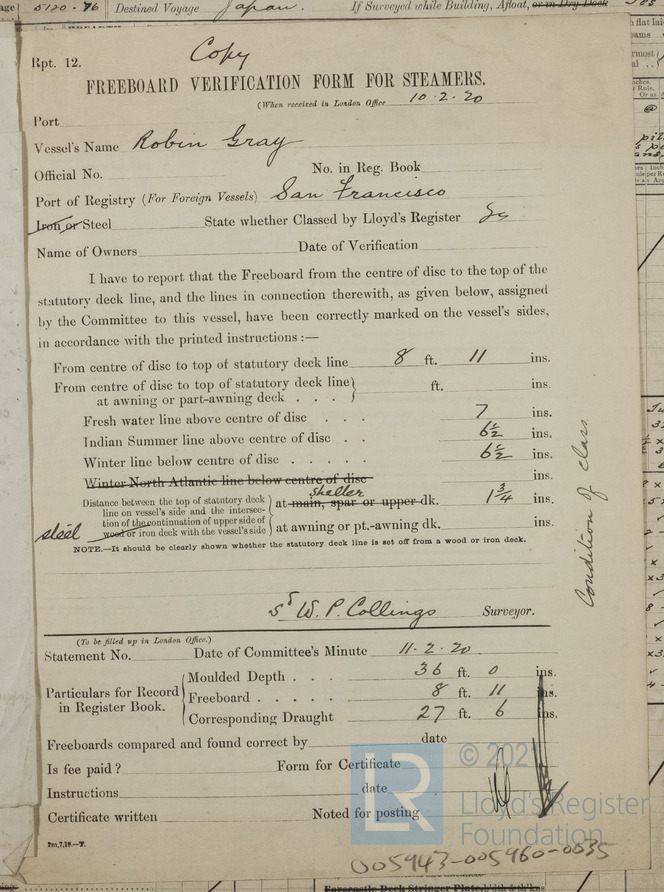 5120.96 Destined Voyage Japan. If Surveyed while Building, Afloat, or in Dry Dock
Copy
Rpt. 12.
FREEBOARD VERIFICATION FORM FOR STEAMERS.
(When received in London Office 10.2.20
Port
Vessel's Name Robin Gray
Official No. No. in Reg. Book
Port of Registry (For Foreign Vessels) San Francisco
Iron or Steel State whether Classed by Lloyd's Register
Name of Owners Date of Verification
I have to report that the Freeboard from the centre of disc to the top of the
statutory deck line, and the lines in connection therewith, as given below, assigned
by the Committee to this vessel, have been correctly marked on the vessel's sides,
in accordance with the printed instructions :—
From centre of disc to top of statutory deck line 8 ft. 11 ins.
From centre of disc to top of statutory deck line
at awning or part-awning deck . . . ft. ins.
Fresh water line above centre of disc . . 7 ins.
Indian Summer line above centre of disc . . 6½ ins.
Winter line below centre of disc . . . . . 6½ ins.
Winter North Atlantic line below centre of disc ins.
Distance between the top of statutory deck
line on vessel's side and the intersec-
tion of the continuation of upper side of
steel wood or iron deck with the vessel's side
shelter
at main, spar or upper dk. 1¾ ins.
at awning or pt.-awning dk. ins.
NOTE.—It should be clearly shown whether the statutory deck line is set off from a wood or iron deck.
Condition of class
sd W. P. Collings Surveyor.
(To be filled up in London Office.)
Statement No. Date of Committee's Minute 11.2.20
Particulars for Record
in Register Book.
Moulded Depth . . . 36 ft. 0 ins.
Freeboard . . . . . 8 ft. 11 ins.
Corresponding Draught 27 ft. 6 ins.
Freeboards compared and found correct by date
Is fee paid ? Form for Certificate
Instructions date
Certificate written Noted for posting
2m,7,19.—T.
LR
© 2021
Lloyd's Register
Foundation
005943-005960-0035
Forecastle Deck Stringer Plate